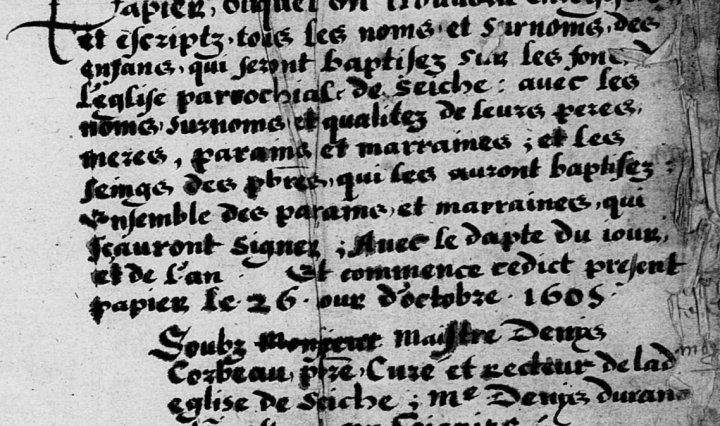 Papier, ouquel on trouvera
et escriptz, tous les noms et surnoms, des
enfans, qui seront baptisez sur les fons
l'eglise parrochial de Seiche: avec les
noms, surnoms, et qualitez de leurs peres,
meres, parains et marraines; et les
seings des pbres, qui les auront baptisez:
Ensemble des parains, et marraines, qui
sçauront signer; Avec le dapte du iour,
et de l'an Et commence cedict present
papier le 26. our d'octobre. 1605.
Soubz maistre Denys
Corbeau, pbre, Curé et recteur de lad
eglise de Seiche; Me Denys durand